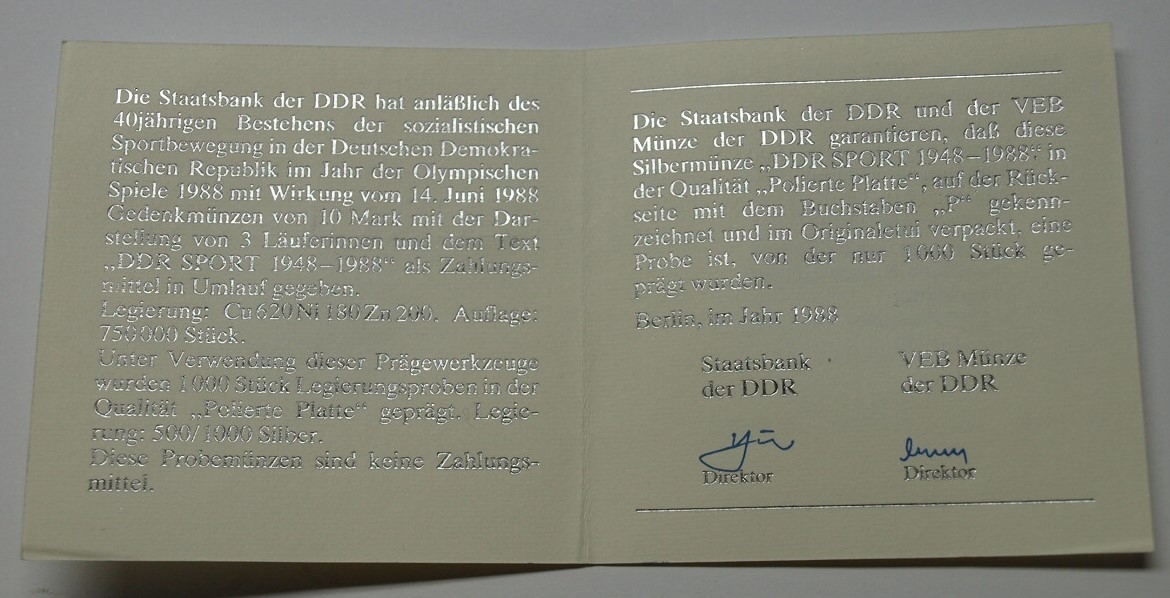 Die Staatsbank der DDR hat anläßlich des
40jährigen Bestehens der sozialistischen
Sportbewegung in der Deutschen Demokra-
tischen Republik im Jahr der Olympischen
Spiele 1988 mit Wirkung vom 14. Juni 1988
Gedenkmünzen von 10 Mark mit der Dar-
stellung von 3 Läuferinnen und dem Text
„DDR SPORT 1948–1988“ als Zahlungs-
mittel in Umlauf gegeben.
Legierung: Cu620Ni180Zn200. Auflage:
750000 Stück.
Unter Verwendung dieser Prägewerkzeuge
wurden 1000 Stück Legierungsproben in der
Qualität „Polierte Platte“ geprägt. Legie-
rung: 500/1000 Silber.
Diese Probemünzen sind keine Zahlungs-
mittel.
Die Staatsbank der DDR und der VEB
Münze der DDR garantieren, daß diese
Silbermünze „DDR SPORT 1948–1988“ in
der Qualität „Polierte Platte“, auf der Rück-
seite mit dem Buchstaben „P“ gekenn-
zeichnet und im Originaletui verpackt, eine
Probe ist, von der nur 1000 Stück ge-
prägt wurden.
Berlin, im Jahr 1988
Staatsbank
der DDR
Direktor
VEB Münze
der DDR
Direktor